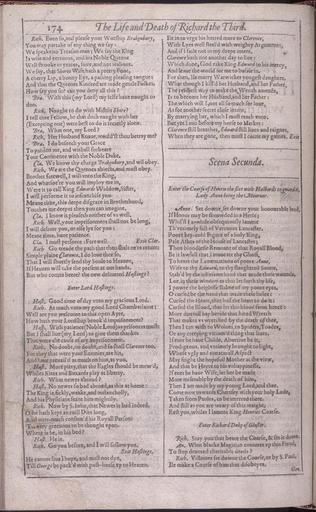 174 The Life and Death of Richard the Third.
Rich. Even so, and please your Worship Brakenbury,
You may partake of any thing we say:
We speake no Treason man; We say the King
Is wise and vertuous, and his Noble Queene
Well strooke in yeares, faire, and not iealious.
We say, that Shores Wife hath a pretty Foot,
A cherry Lip, a bonny Eye, a passing pleasing tongue:
And that the Queenes Kindred are made gentle Folkes.
How say you sir? can you deny all this?
Bra. With this (my Lord) my selfe haue nought to doo.
Rich. Naught to do with Mistris Shore?
I tell thee Fellow, he that doth naught with her
(Excepting one) were best to do it secretly alone.
Bra. What one, my Lord?
Rich. Her Husband Knaue, would'st thou betray me?
Bra. I do beseech your Grace
To pardon me, and withall forbeare
Your Conference with the Noble Duke.
Cla. We know thy charge Brakenbury, and wil obey.
Rich. We are the Queenes abiects, and must obey.
Brother farewell, I will vnto the King,
And whatsoe're you will imploy me in,
Were it to call King Edwards Widdow, Sister,
I will performe it to infranchise you.
Meane time, this deepe disgrace in Brotherhood,
Touches me deeper then you can imagine.
Cla. I know it pleaseth neither of vs well.
Rich. Well, your imprisonment shall not be long,
I will deliuer you, or else lye for you:
Meane time, haue patience.
Cla. I must perforce: Farewell. Exit Clar.
Rich. Go treade the path that thou shalt ne're return:
Simple plaine Clarence, I do loue thee so,
That I will shortly send thy Soule to Heauen,
If Heauen will take the present at our hands.
But who comes heere? the new deliuered Hastings?
Enter Lord Hastings.
Hast. Good time of day vnto my gracious Lord.
Rich. As much vnto my good Lord Chamberlaine:
Well are you welcome to this open Ayre,
How hath your Lordship brook'd imprisonment?
Hast. With patience (Noble Lord) as prisoners must:
But I shall liue (my Lord) to giue them thankes
That were the cause of my imprisonment.
Rich. No doubt, no doubt, and so shall Clarence too,
For they that were your Enemies, are his,
And haue preuail'd as much on him, as you,
Hast. More pitty, that the Eagles should be mew'd,
Whiles Kites and Buzards play at liberty.
Rich. What newes abroad?
Hast. No newes so bad abroad, as this at home:
The King is sickly, weake, and melancholly,
And his Physitians feare him mightily.
He hath kept an euill Diet long,
And ouer-much consum'd his Royall Person:
'Tis very greeuous to be thought vpon.
Where is he, in his bed?
Hast. He is.
Rich. Go you before, and I will follow you.
Exit Hastings.
He cannot liue I hope, and must not dye,
Till George be pack'd with post-horse vp to Heauen.
Ile in to vrge his hatred more to Clarence,
With Lyes well steel'd with weighty Arguments,
And if I faile not in my deepe intent,
Clarence hath not another day to liue:
Which done, God take King Edward to his mercy,
And leaue the world for me to bussle in.
For then, Ile marry Warwickes yongest daughter.
What though I kill'd her Husband, and her Father,
The readiest way to make the Wench amends,
Is to become her Husband, and her Father:
The which will I, not all so much for loue,
As for another secret close intent,
By marrying her, which I must reach vnto.
But yet I run before my horse to Market:
Clarence still breathes, Edward still liues and raignes,
When they are gone, then must I count my gaines. Exit
Scena Secunda.
Enter the Coarse of Henrie the sixt with Halberds to guard it,
Lady Anne being the Mourner.
Anne. Set downe, set downe your honourable load,
If Honor may be shrowded in a Herse;
Whil'st I a-while obsequiously lament
Th'vntimely fall of Vertuous Lancaster.
Poore key-cold Figure of a holy King,
Pale Ashes of the house of Lancaster;
Thou bloodlesse Remnant of that Royall Blood,
Be it lawfull that I inuocate thy Ghost,
To heare the Lamentations of poore Anne,
Wife to thy Edward, to thy slaughtred Sonne,
Stab'd by the selfesame hand that made these wounds.
Loe, in these windowes that let forth thy life,
I powre the helplesse Balme of my poore eyes.
O cursed be the hand that made these holes:
Cursed the Heart, that had the heart to do it:
Cursed the Blood, that let this blood from hence:
More direfull hap betide that hated Wretch
That makes vs wretched by the death of thee,
Then I can wish to Wolues, to Spiders, Toades,
Or any creeping venom'd thing that liues.
If euer he haue Childe, Abortiue be it,
Prodigeous, and vntimely brought to light,
Whose vgly and vnnaturall Aspect
May fright the hopefull Mother at the view,
And that be Heyre to his vnhappinesse.
If euer he haue Wife, let her be made
More miserable by the death of him,
Then I am made by my young Lord, and thee.
Come now towards Chertsey with your holy Lode,
Taken from Paules, to be interred there.
And still as you are weary of this waight,
Rest you, whiles I lament King Henries Coarse.
Enter Richard Duke of Gloster.
Rich. Stay you that beare the Coarse, & set it down.
An. What blacke Magitian coniures vp this Fiend,
To stop deuoted charitable deeds?
Rich. Villaines set downe the Coarse, or by S. Paul,
Ile make a Coarse of him that disobeyes.
Gen.